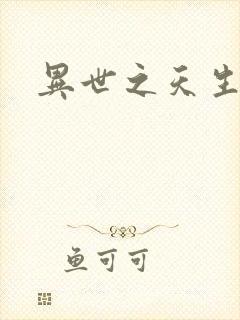 異世之天生
鱼可可